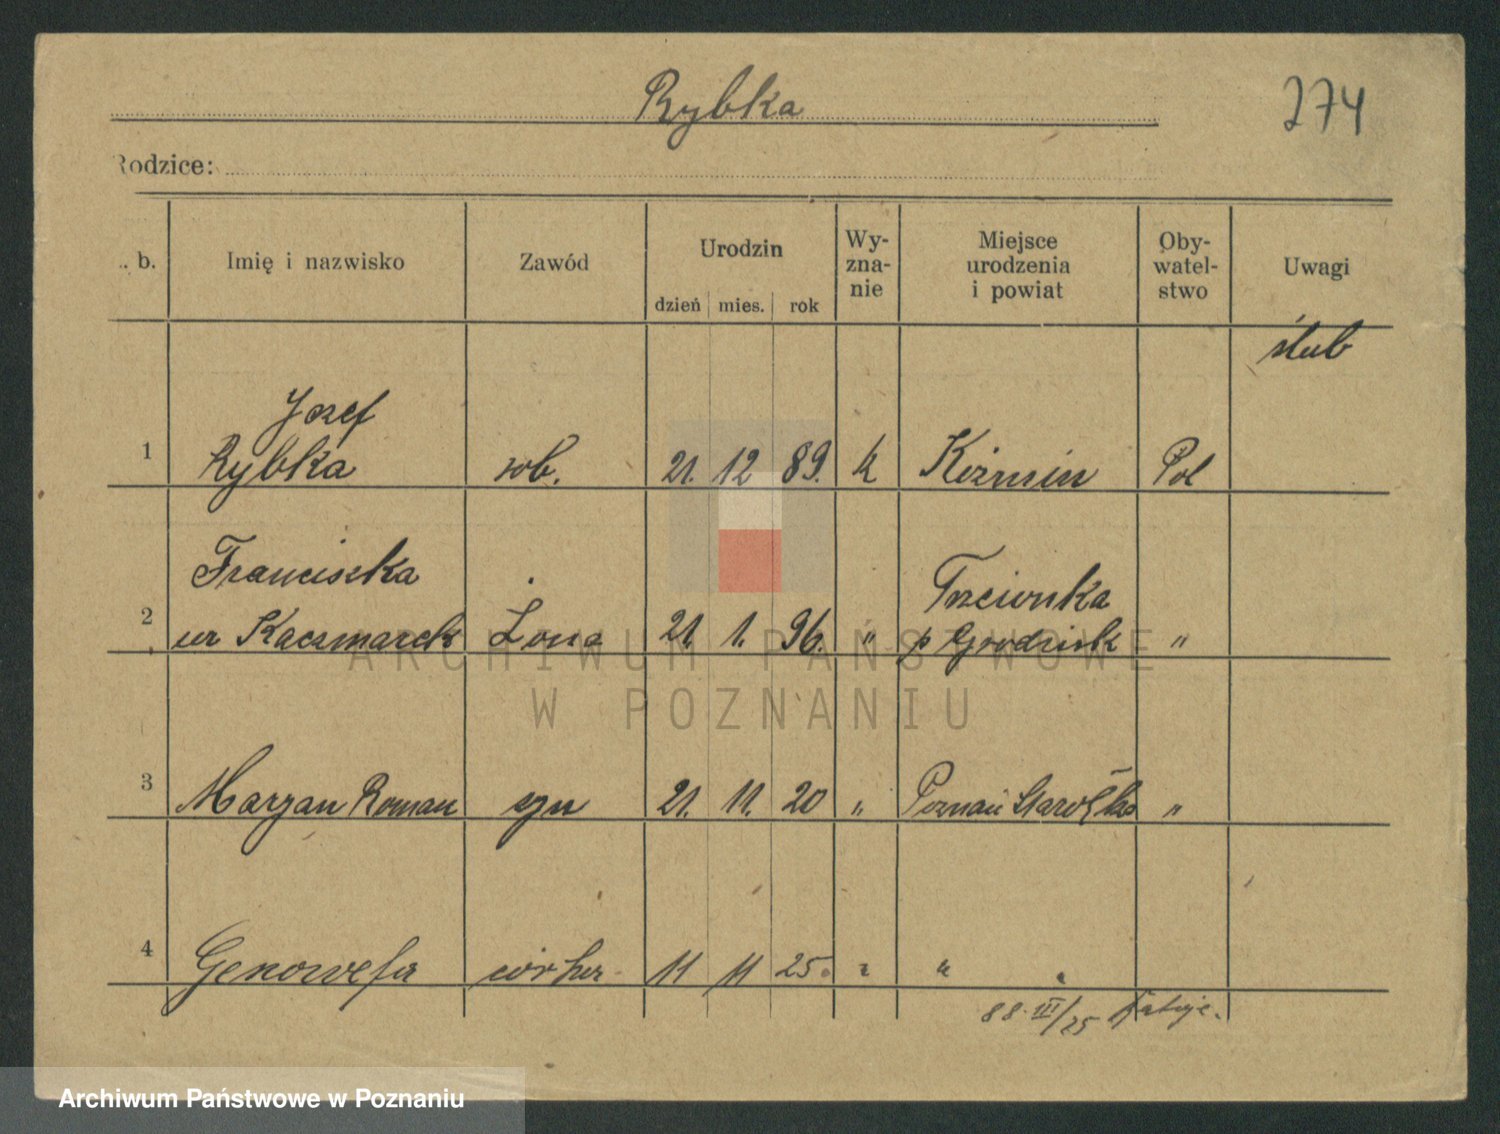 Rybka
274
Rodzice:
. b.
Imię i nazwisko
Zawód
Urodzin
dzień mies. rok
Wy-
zna-
nie
Miejsce
urodzenia
i powiat
Oby-
watel-
stwo
Uwagi
ślub
Jozef
1 Rybka rob. 21. 12 89. k Koźmin Pol
Franciszka Trzcionka
2 ur Kaczmarek Żona 21. 1. 96. " p Grodzisk "
3 Maryan Roman syn 21. 11. 20 " Poznań "
4 Genowefa córka 11 11 25. " " "
88. III/25
ARCHIWUM PAŃSTWOWE
W POZNANIU
Archiwum Państwowe w Poznaniu